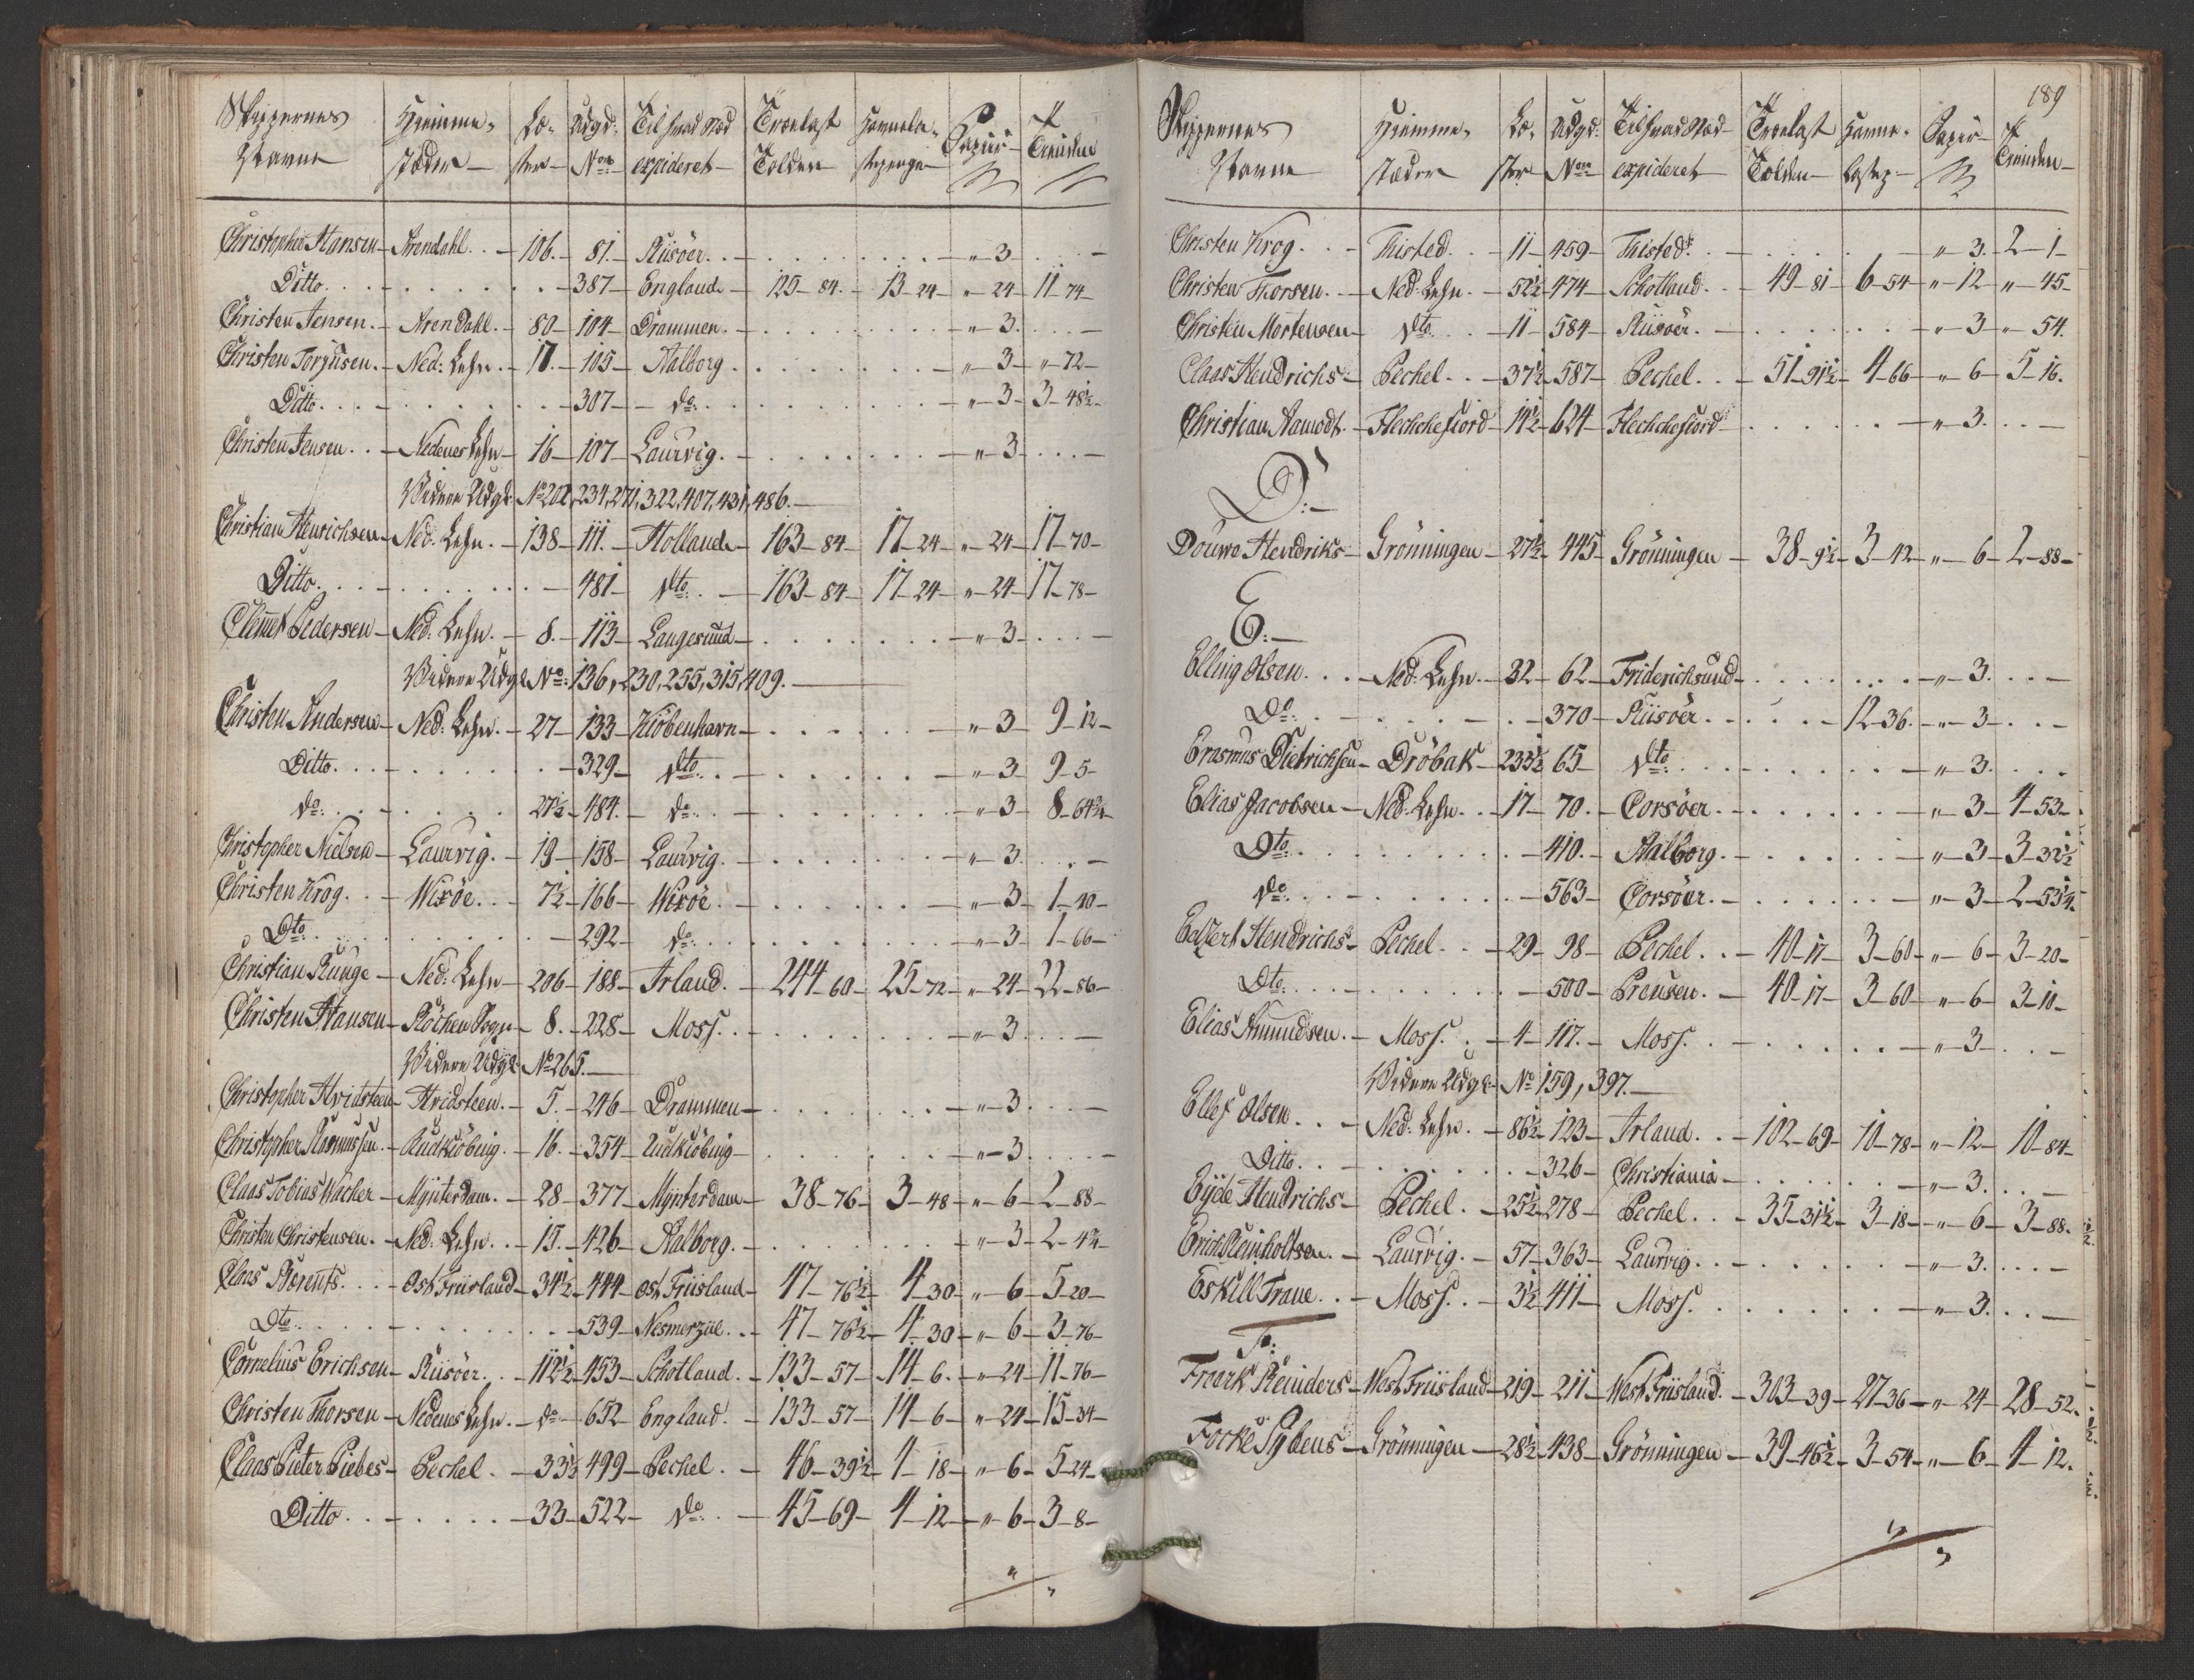 Skippernes Hiemme- Læ- Udgd. Til hvad Stæd Trælast Havnela- Papiir
Navne stæder ster Nor expideret Tolden stepenge Tienden
Christopher Hansen - Arendahl . . - 106. - 81. - Riisöer . . - „ - 3 . . -
Ditto . . . - 387 - England - 125 - 84. - 13 - 24 - „ - 24 - 11 - 74 -
Christen Jensen . - Arendahl . - 80 - 104 - Drammen . - „ - 3 . . -
Christen Torjusen . - Ned: Lehn . - 17. - 105 - Aalborg . - „ - 3 - „ - 72 -
Ditto . . . - 307 - do . - „ - 3 - 3 - 48½ -
Christen Jensen . . - Nedenes Lehn - 16 - 107 - Laurvig . - „ - 3 . . . -
Videre Udgd: No 202, 234, 271, 322, 407, 431, 486. -
Christian Henrichsen - Ned: Lehn . - 138 - 111. - Holland - 163 - 84 - 17 - 24 - „ - 24 - 17 - 70 -
Ditto . . . - 481 - dto . . - 163 - 84 - 17 - 24 - „ - 24 - 17 - 78 -
Clemet Pedersen - Ned: Lehn . - 8. - 113 - Langesund - „ - 3 . . . -
Videre Udgd. No: 136, 230, 255, 315, 409. -
Christen Andersen - Ned: Lehn . - 27 - 133 - Kiöbenhavn - „ - 3 - 9 - 12 -
Ditto . . . - 329 - dto . . - „ - 3 - 9 - 5 -
do . . . 27½ - 484. - do . - „ - 3 - 8 - 64¾ -
Christopher Nielsen - Laurvig . - 19 - 158 - Laurvig . - „ - 3 . . -
Christen Krog . . - Wixöe . . - 7½ - 166 - Wixöe . - „ - 3 - 1 - 40 -
Dto . . . - 292 - do . . - „ - 3 - 1 - 66 -
Christian Runge - Ned: Lehn - 206 - 188 - Irland . - 244 - 60 - 25 - 72 - „ - 24 - 22 - 86 -
Christen Hansen - Röchen Sogn - 8. - 228 - Moss . . - „ - 3 . . -
Videre Udgd. No 265. -
Christopher Hvidsteen - Hvidsteen . - 5. - 246 - Drammen - „ - 3 . . -
Christopher Rasmussen . - Rudkiöbing . - 16. - 354 - Rudkiöbing - „ - 3 . . . -
Claas Tobias Wacker - Mÿnterdam . - 28 - 377 - Mÿnterdam - 38 - 76 - 3 - 48 - „ - 6 - 2 - 88 -
Christen Christensen . - Ned: Lehn . . - 15. - 426 - Aalborg . - „ - 3 - 2 - 4¾ -
Claas Berents . . . - Ost Friisland - 34½ - 444 - Ost Friisland - 47 - 76½ - 4 - 30 - „ - 6 - 5 - 20 -
Dto . . . - 539 - Nesmerzul . . - 47 - 76½ - 4 - 30 - „ - 6 - 3 - 76 -
Cornelius Erichsen - Riisöer . . - 112½ - 453 - Schotland . - 133 - 57 - 14 - 6. - „ - 24 - 11 - 76 -
Christen Thorsen - Nedenes Lehn . - do - 652 - England . - 133 - 57 - 14 - 6 - „ - 24 - 15 - 34 -
Claas Pieter Piebes - Pechel . - 33½ - 499 - Pechel . - 46 - 39½ - 4 - 18 - „ - 6 - 5 - 24 -
Ditto . . - 33 - 522 - do . . - 45 - 69 - 4 - 12 - „ - 6 - 3 - 8 -
189
Skippernes Hiemme- Læ- Udgd: Til hvad Stæd Trælast Havne- Papiir
Navne stæder ster Nor expideret Tolden Lastep. Tienden
Christen Krog . . . - Thisted . . - 11 - 459 - Thisted . - „ - 3. - 2 - 1 -
Christen Thorsen . - Ned: Lehn . - 52½ - 474 - Schotland . . - 49 - 81 - 6 - 54 - „ - 12 - „ - 45 -
Christen Mortensen - dto . . - 11 - 584 - Riisöer . - „ - 3 - „ - 54.
Claas Hendrichs - Pechel . . - 37½ - 587 - Pechel . . - 51 - 91½ - 4 - 66 - „ - 6 - 5 - 16.
Christian Aamodt . - Flechchefiord - 14½ - 624 - Flechchefiord . - „ - 3. . . -
D: -
Douwe Hendriks - Grönningen - 27½ - 445 - Grönningen - 38 - 9½ - 3 - 42 - „ - 6 - 2 - 88 -
E: -
Elling Olsen . . . - Ned: Lehn . - 32 - 62 - Friderichsund - „ - 3. . . -
Do . . - 370 - Riisöer . . - 12 - 36. - „ - 3 - . . -
Erasmus Dietrichsen - Dröbak - 233½ 65 - dto . . - „ - 3. . . .
Elias Jacobsen - Ned: Lehn . . - 17 - 70. - Corsöer . - „ - 3 - 4 - 53 -
Dto . . . - 410. - Aalborg . - „ - 3 - 3 - 32½
do . . . - 563 - Corsöer . - „ - 3 - 2 - 53¼.
Edzert Hendrichs - Pechel . . - 29 - 98 - Pechel . . - 40 - 17 - 3 - 60 - „ - 6 - 3 - 20 -
Dto . . . - 500 - Preusen . - 40 - 17 - 3 - 60 - „ - 6 - 3 - 10 -
Elias Amundsen . - Moss . . - 4 - 117. - Moss . . - „ - 3 - . . -
Videre Udgd. No 159, 397. -
Ellef Olsen . . . - Ned: Lehn . - 86½ - 123 - Irland . . - 102 - 69 - 10 - 78 - „ - 12 - 10 - 84 -
Ditto . . - 326 - Christiania - „ - 3. . . -
Eÿde Hendrichs - Pechel . - 25½ - 278 - Pechel . . - 35 - 31½ - 3 - 18 - „ - 6 - 3 - 88.
Erich Reinholtsen . - Laurvig . - 57 - 363 - Laurvig . - „ - 3. . . . -
Eskill Trane . . - Moss . . - 3½ 411 - Moss . . - „ - 3. . . -
F:
Freerk Reinders - West Friisland - 219 - 211 - West Friisland . - 303 - 39 - 27 - 36 - „ - 24 - 28 - 52.
Focke Sybens - Grönningen - 28½ - 438 - Grönningen - 39 - 46½ - 3 - 54 - „ - 6 - 4 - 12.